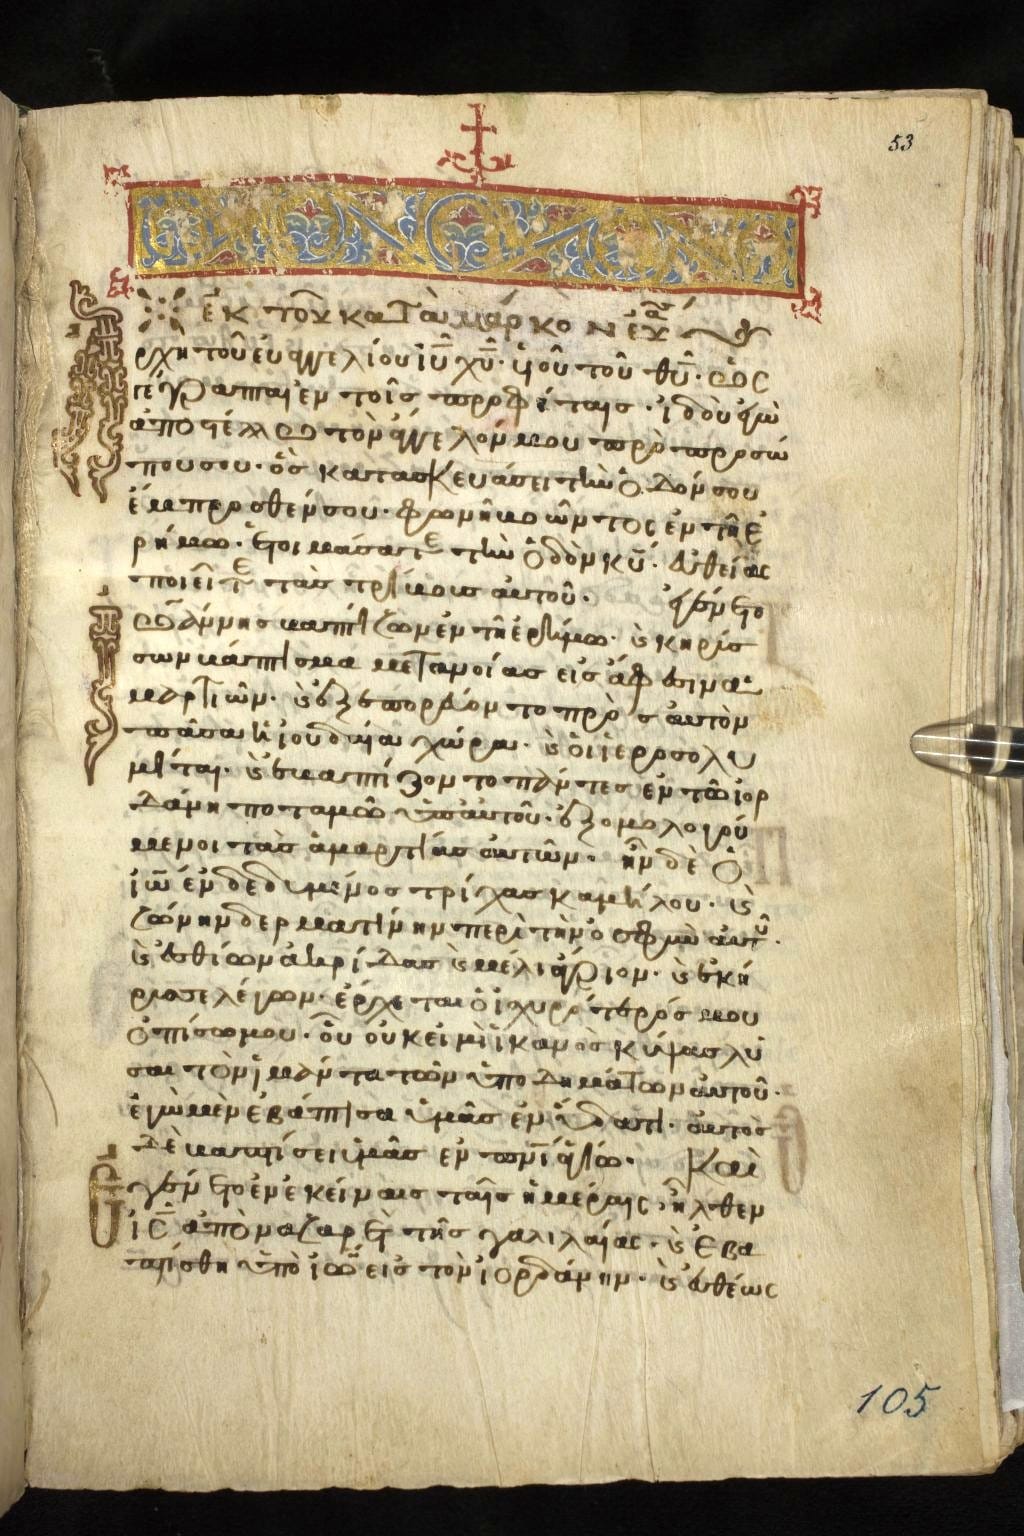 53
ἐκ τοῦ κατὰ μάρκον εὐα
ρχὴ τοῦ εὐαγγελίου ἰῦ χῦ· υἱοῦ τοῦ θῦ· ὡς
γέγραπται ἐν τοῖς προφήταις· ἰδοὺ ἐγὼ
ἀποστέλλω τὸν ἄγγελόν μου πρὸ προσώ
που σου· ὃς κατασκευάσει τὴν ὁδόν σου
ἔμπροσθέν σου· φωνὴ βοῶντος ἐν τῇ ἐ
ρήμω· ἑτοιμάσατε τὴν ὁδὸν κῦ· εὐθείας
ποιεῖτε τὰς τρίβους αὐτοῦ· ἐγένετο
ϊωάννης βαπτίζων ἐν τῇ ἐρήμω· καὶ κηρύσ
σων βάπτισμα μετανοίας εἰς ἄφεσιν ἁ
μαρτιῶν· καὶ ἐξεπορεύοντο πρὸς αὐτὸν
πᾶσα ἡ ἰουδαία χώρα· καὶ οἱ ἱεροσολυ
μῖται· καὶ ἐβαπτίζοντο πάντες ἐν τῶ ἰορ
δάνη ποταμῶ ὑπ αὐτοῦ· ἐξομολογού
μενοι τὰς ἁμαρτίας αὐτῶν· ἦν δὲ ὁ
ἰῶ ἐνδεδυμένος τρίχας καμήλου· καὶ
ζώνην δερματίνην περὶ τὴν ὀσφὺν αὐτοῦ·
καὶ ἐσθίων ἀκρίδας καὶ μέλι ἄγριον· καὶ ἐκή
ρυσσε λέγων· ἔρχεται ὁ ἰσχυρότερός μου
ὀπίσω μου· οὗ οὐκ εἰμὶ ἱκανὸς κύψας λῦ
σαι τὸν ἱμάντα τῶν ὑποδημάτων αὐτοῦ·
ἐγὼ μὲν ἐβάπτισα ὑμᾶς ἐν ὕδατι· αὐτὸς
δὲ βαπτίσει ὑμᾶς ἐν πνῒ ἁγίω· Καὶ
ἐγένετο ἐν ἐκείναις ταῖς ἡμέραις, ἦλθεν
ἰς ἀπὸ ναζαρὲτ τῆς γαλιλαίας· καὶ ἐβα
πτίσθη ὑπὸ ἰῶ εἰς τὸν ἰορδάνην· καὶ εὐθέως
105